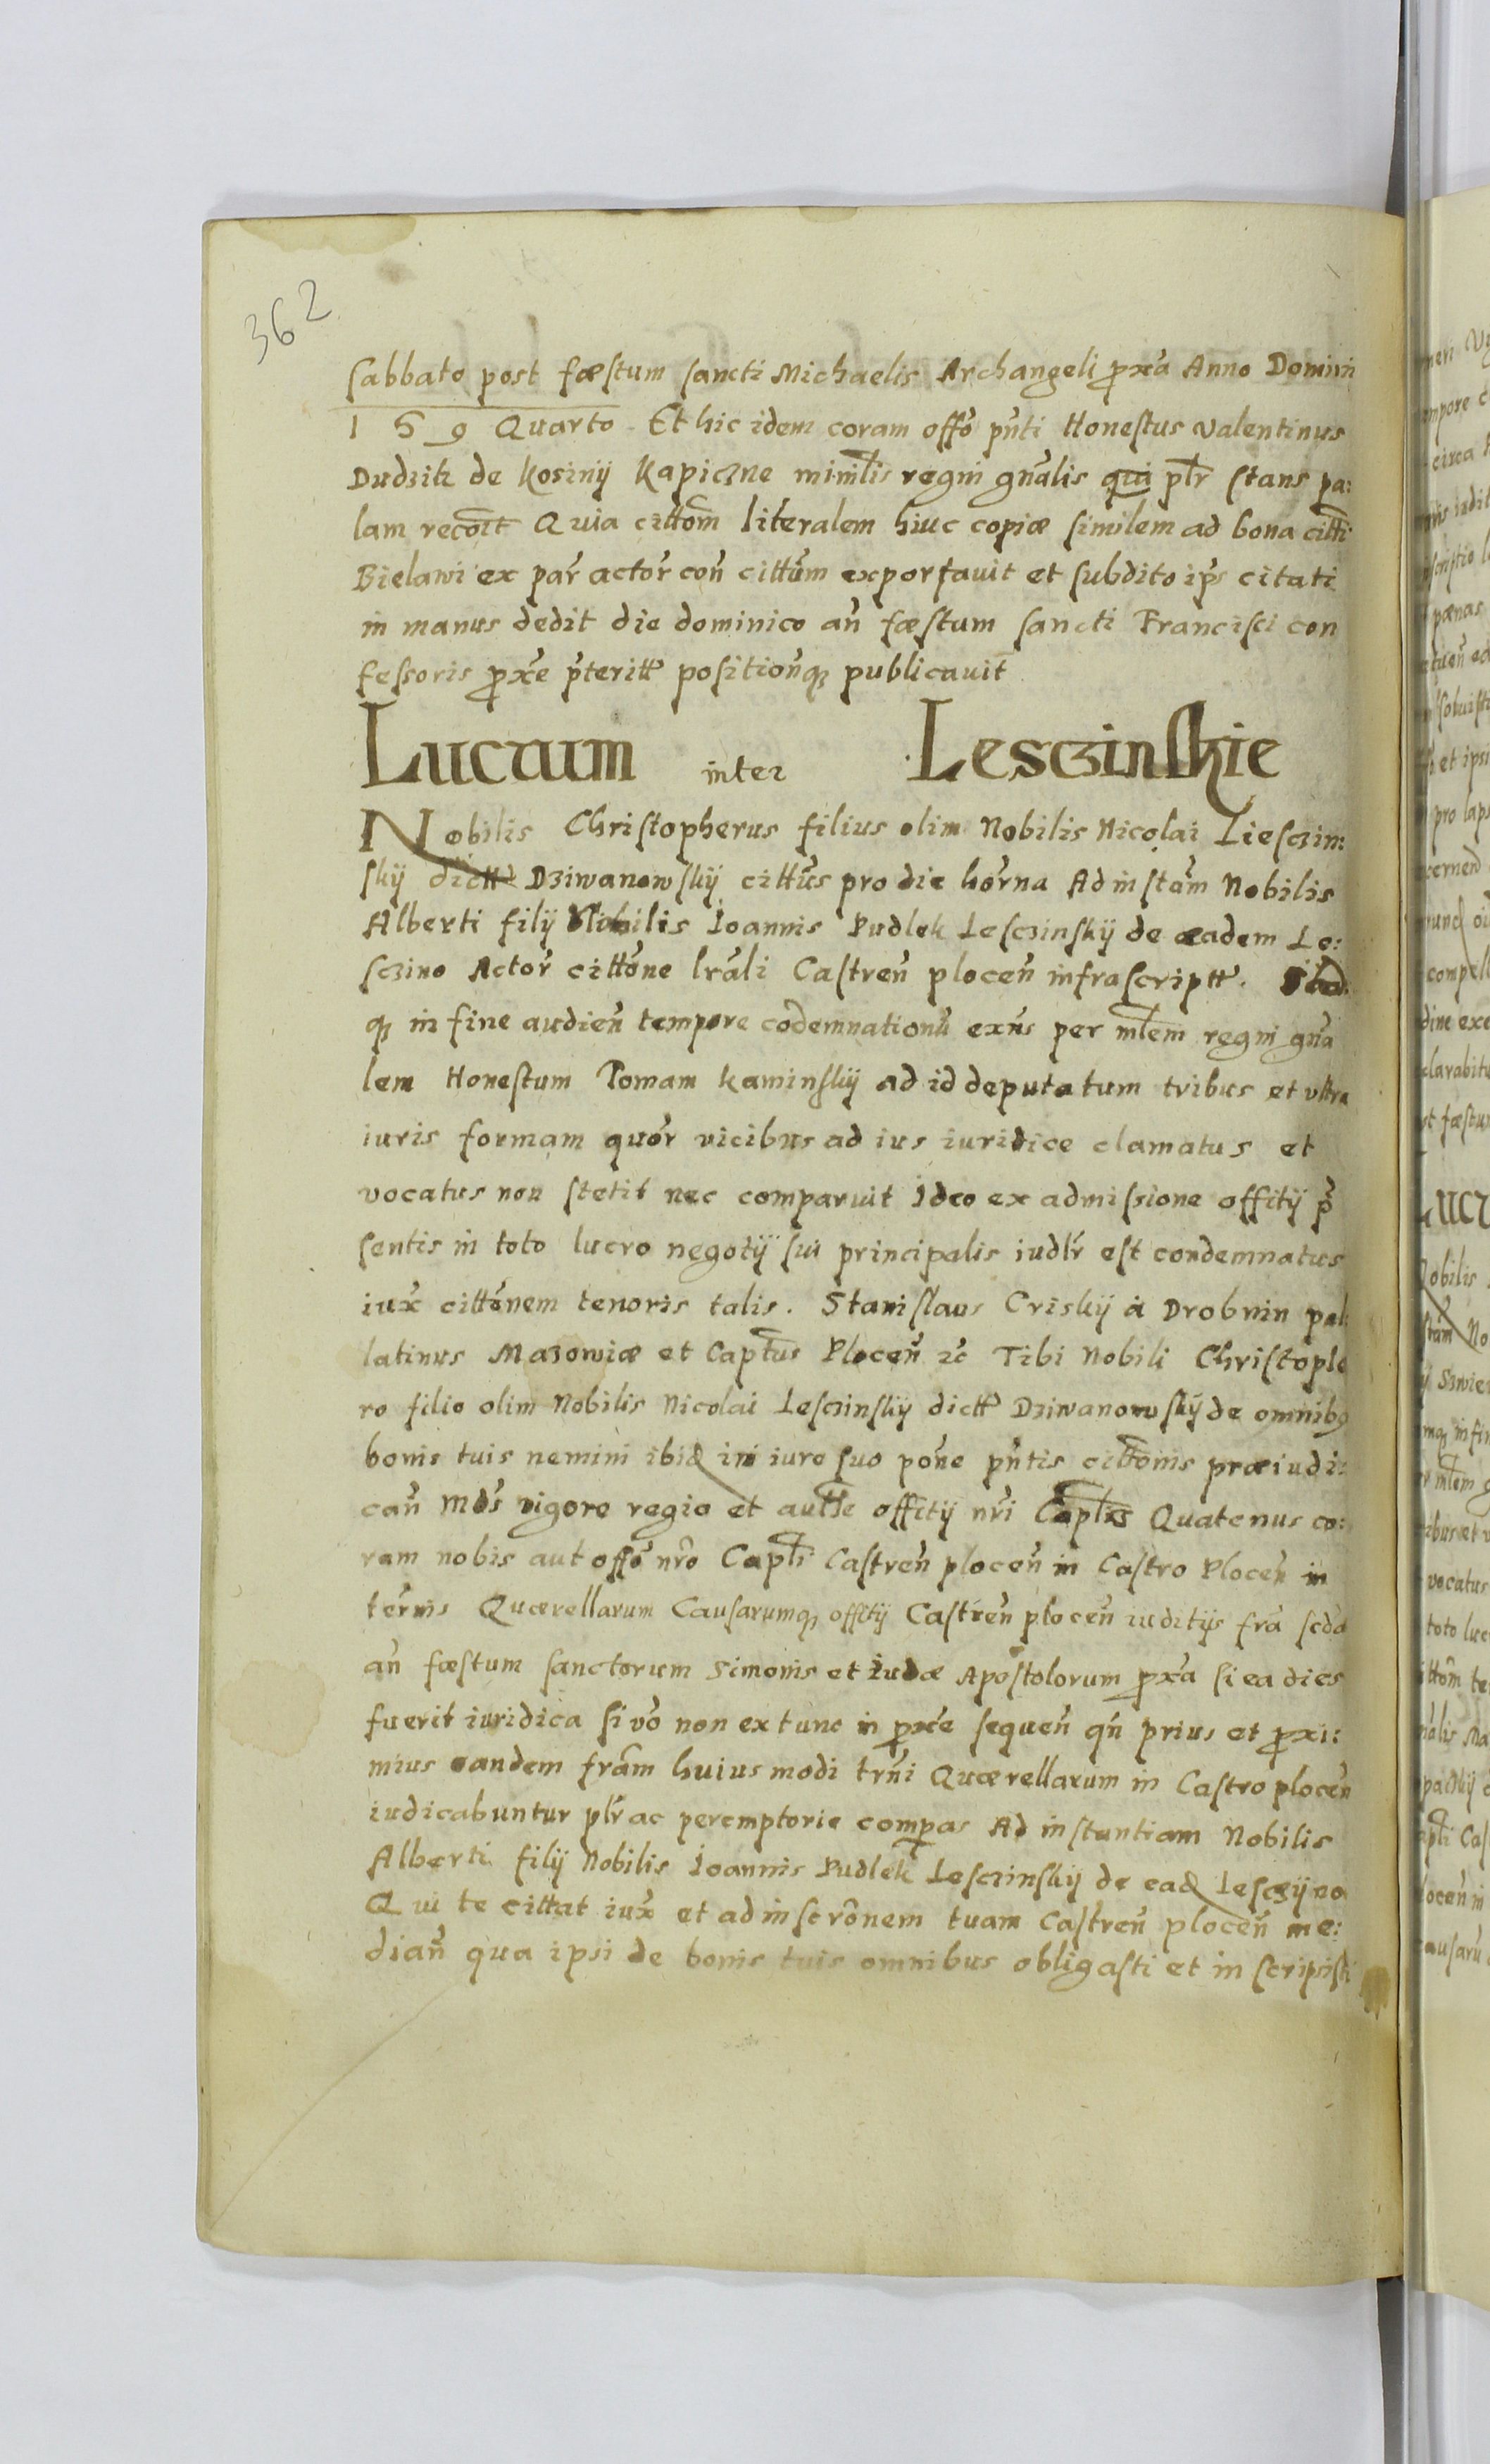 362
sabbato post fæstum sancti Michaelis Archangeli pxa Anno Domini
1 5 9 Quarto Et hic idem coram offo pnti Honestus Valentinus
Dudzik de Kosinij Kapiczne minilis regni gnalis qui plr stans pa:
lam recoit Quia cittom literalem huic copiæ similem ad bona citti
Bielawi ex par actor con cittum exportavit et subdito ips citati
in manus dedit die dominico an fæstum sancti Francisci con
fessoris pxe pteritt positionq publicavit
Lucrum inter Lesczinskie
Nobilis Christopherus filius olim Nobilis Nicolai Liesczin:
skij dictt Dziwanowskij cittus pro die horna Ad instam Nobilis
Alberti filij Nobilis Ioannis Pudlek Lesczinskij de eadem Le:
sczino Actor cittone lrali Castren plocen infrascriptt.
q in fine audien tempore codemnationu exns per mlem regni gna
lem Honestum Tomam Kaminskij ad id deputatum tribus et ultra
iuris formam quor vicibus ad ius iuridice clamatus et
vocatus non stetit nec comparuit Ideo ex admissione offitij p
sentis in toto lucro negotij sui principalis iudlr est condemnatus
iux cittonem tenoris talis. Stanislaus Criskij à Drobnin pal:
latinus Mazowiæ et Captus Plocen 2c Tibi Nobili Christophe
ro filio olim Nobilis Nicolai Lesczinskij dictt Dziwanowskij de omnibq
bonis tuis nemini ibid in iure suo pone pntis cittonis præiudi:
can Mds vigore regia et autte offitij nri Captis Quatenus co:
ram nobis aut offo nro Capli Castren plocen in Castro Plocen in
termis Quærellarum Causarumq offitij Castren plocen iuditijs fra scda
an fæstum sanctorum Simonis et Iudæ Apostolorum pxa si ea dies
fuerit iuridica si vo non ex tunc in pxe sequen qn prius et proxi:
mius eandem fram huiusmodi trni Quærellarum in Castro plocen
iudicabuntur plr ac peremptorie compas Ad instantiam Nobilis
Alberti filij Nobilis Ioannis Pudlek Lesczinskij de ead Lesczijno
Qui te cittat iux et ad inscronem tuam Castren plocen me:
dian qua ipsi de bonis tuis omnibus obligasti et inscripsisti